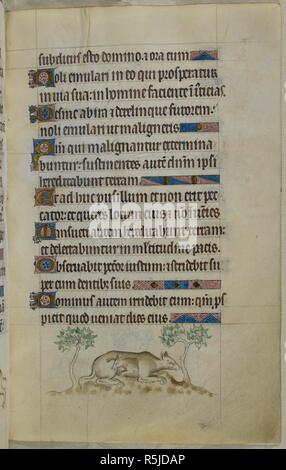 subditus esto domino: a ora eum
Noli emulari in eo qui prosperatur
in via sua: in homine faciente iniusticias
Desine ab ira a derelinque furorem:
noli emulari ut maligneris
Qm̄ qui malignantur extermina
buntur: sustinentes autē dn̄m ipsi
hereditabunt terram
Et adhuc pusillum et non erit pec
cator: et queres locum eius a nō inuenies
Mansueti autem hereditabunt terram:
et delectabuntur in multitudine pacis
Obseruabit pctōr iustum: a stridebit su
per eum dentibus suis
Dominus autem irridebit eum: qm̄ pros
picit quod ueniat dies eius
alamy
Image ID: R5JDAP
www.alamy.com